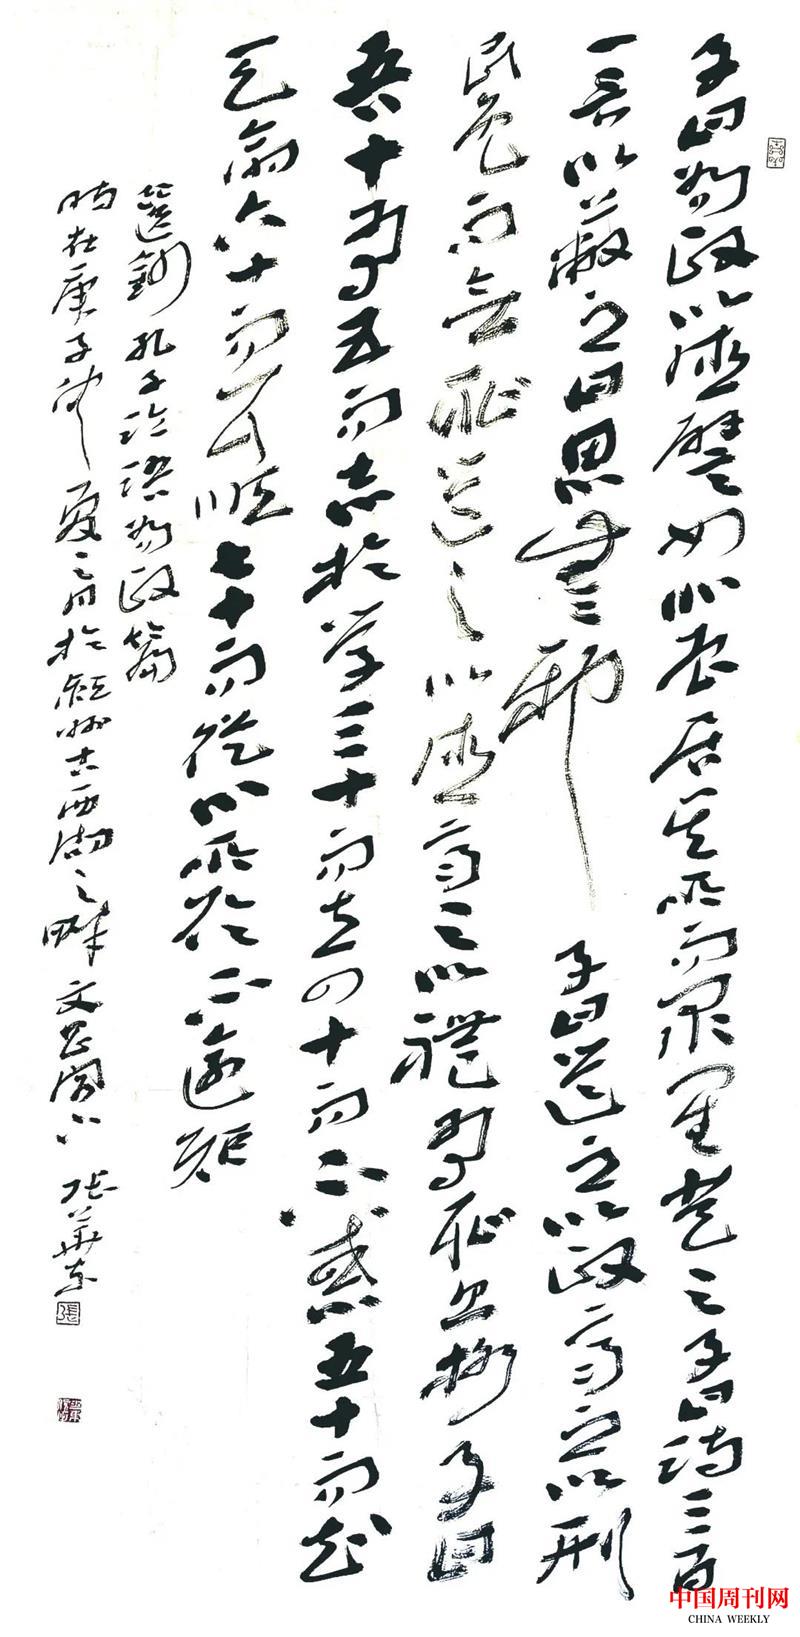 子曰為政以德譬如北辰居其所而眾星共之子曰詩三百
一言以蔽之曰思無邪 子曰道之以政齊之以刑
民免而無恥道之以德齊之以禮有恥且格子曰
吾十有五而志於学三十而立四十而不惑五十而知
天命六十而耳順七十而從心所欲不逾矩
選鈔孔子論語為政篇
時在庚子年夏之月於潁州古西湖之畔文昌閣下 張華東
張
中国周刊网
CHINA WEEKLY